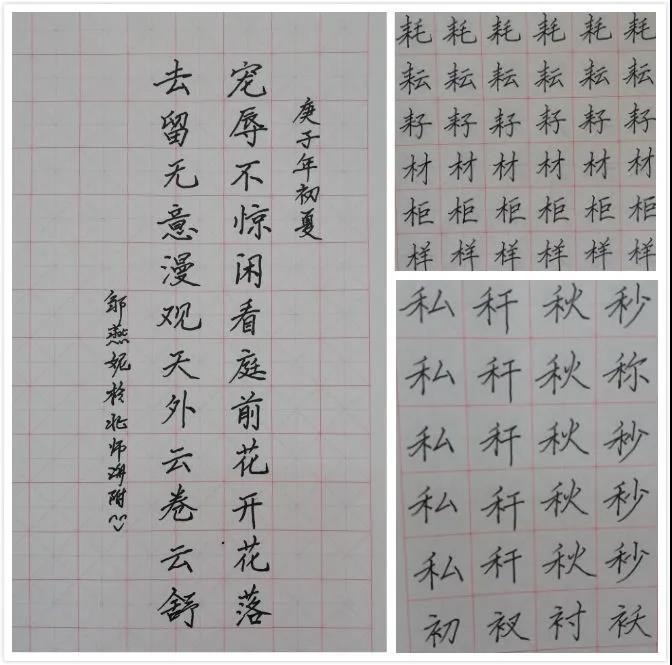 庚子年初夏
宠辱不惊闲看庭前花开花落
去留无意漫观天外云卷云舒
燕妮於北师附
耗耗耗耗耗耗
耘耘耘耘耘耘
耔耔耔耔耔耔
材材材材材材
柜柜柜柜柜柜
样样样样样样
私秆秋秒
私秆秋称
私秆秋秒
私秆秋秒
私秆秋秒
初衩衬袄